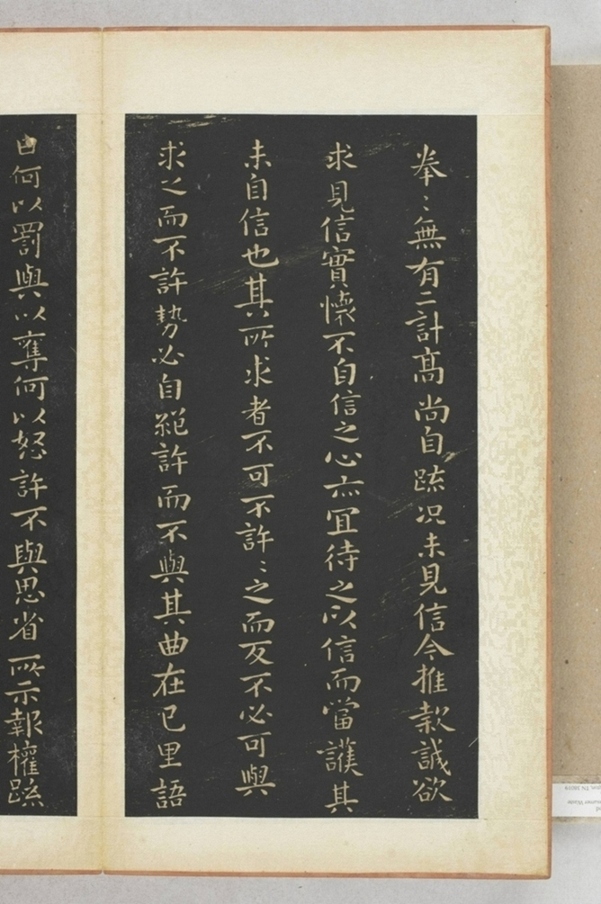 拳〻無有二計高尚自踈况未見信今推款誠欲
求見信實懷不自信之心亦冝待之以信而當護其
未自信也其所求者不可不許〻之而反不必可與
求之而不許勢必自絕許而不與其曲在己里語
曰何以罰與以奪何以怒許不與思省所示報權踈